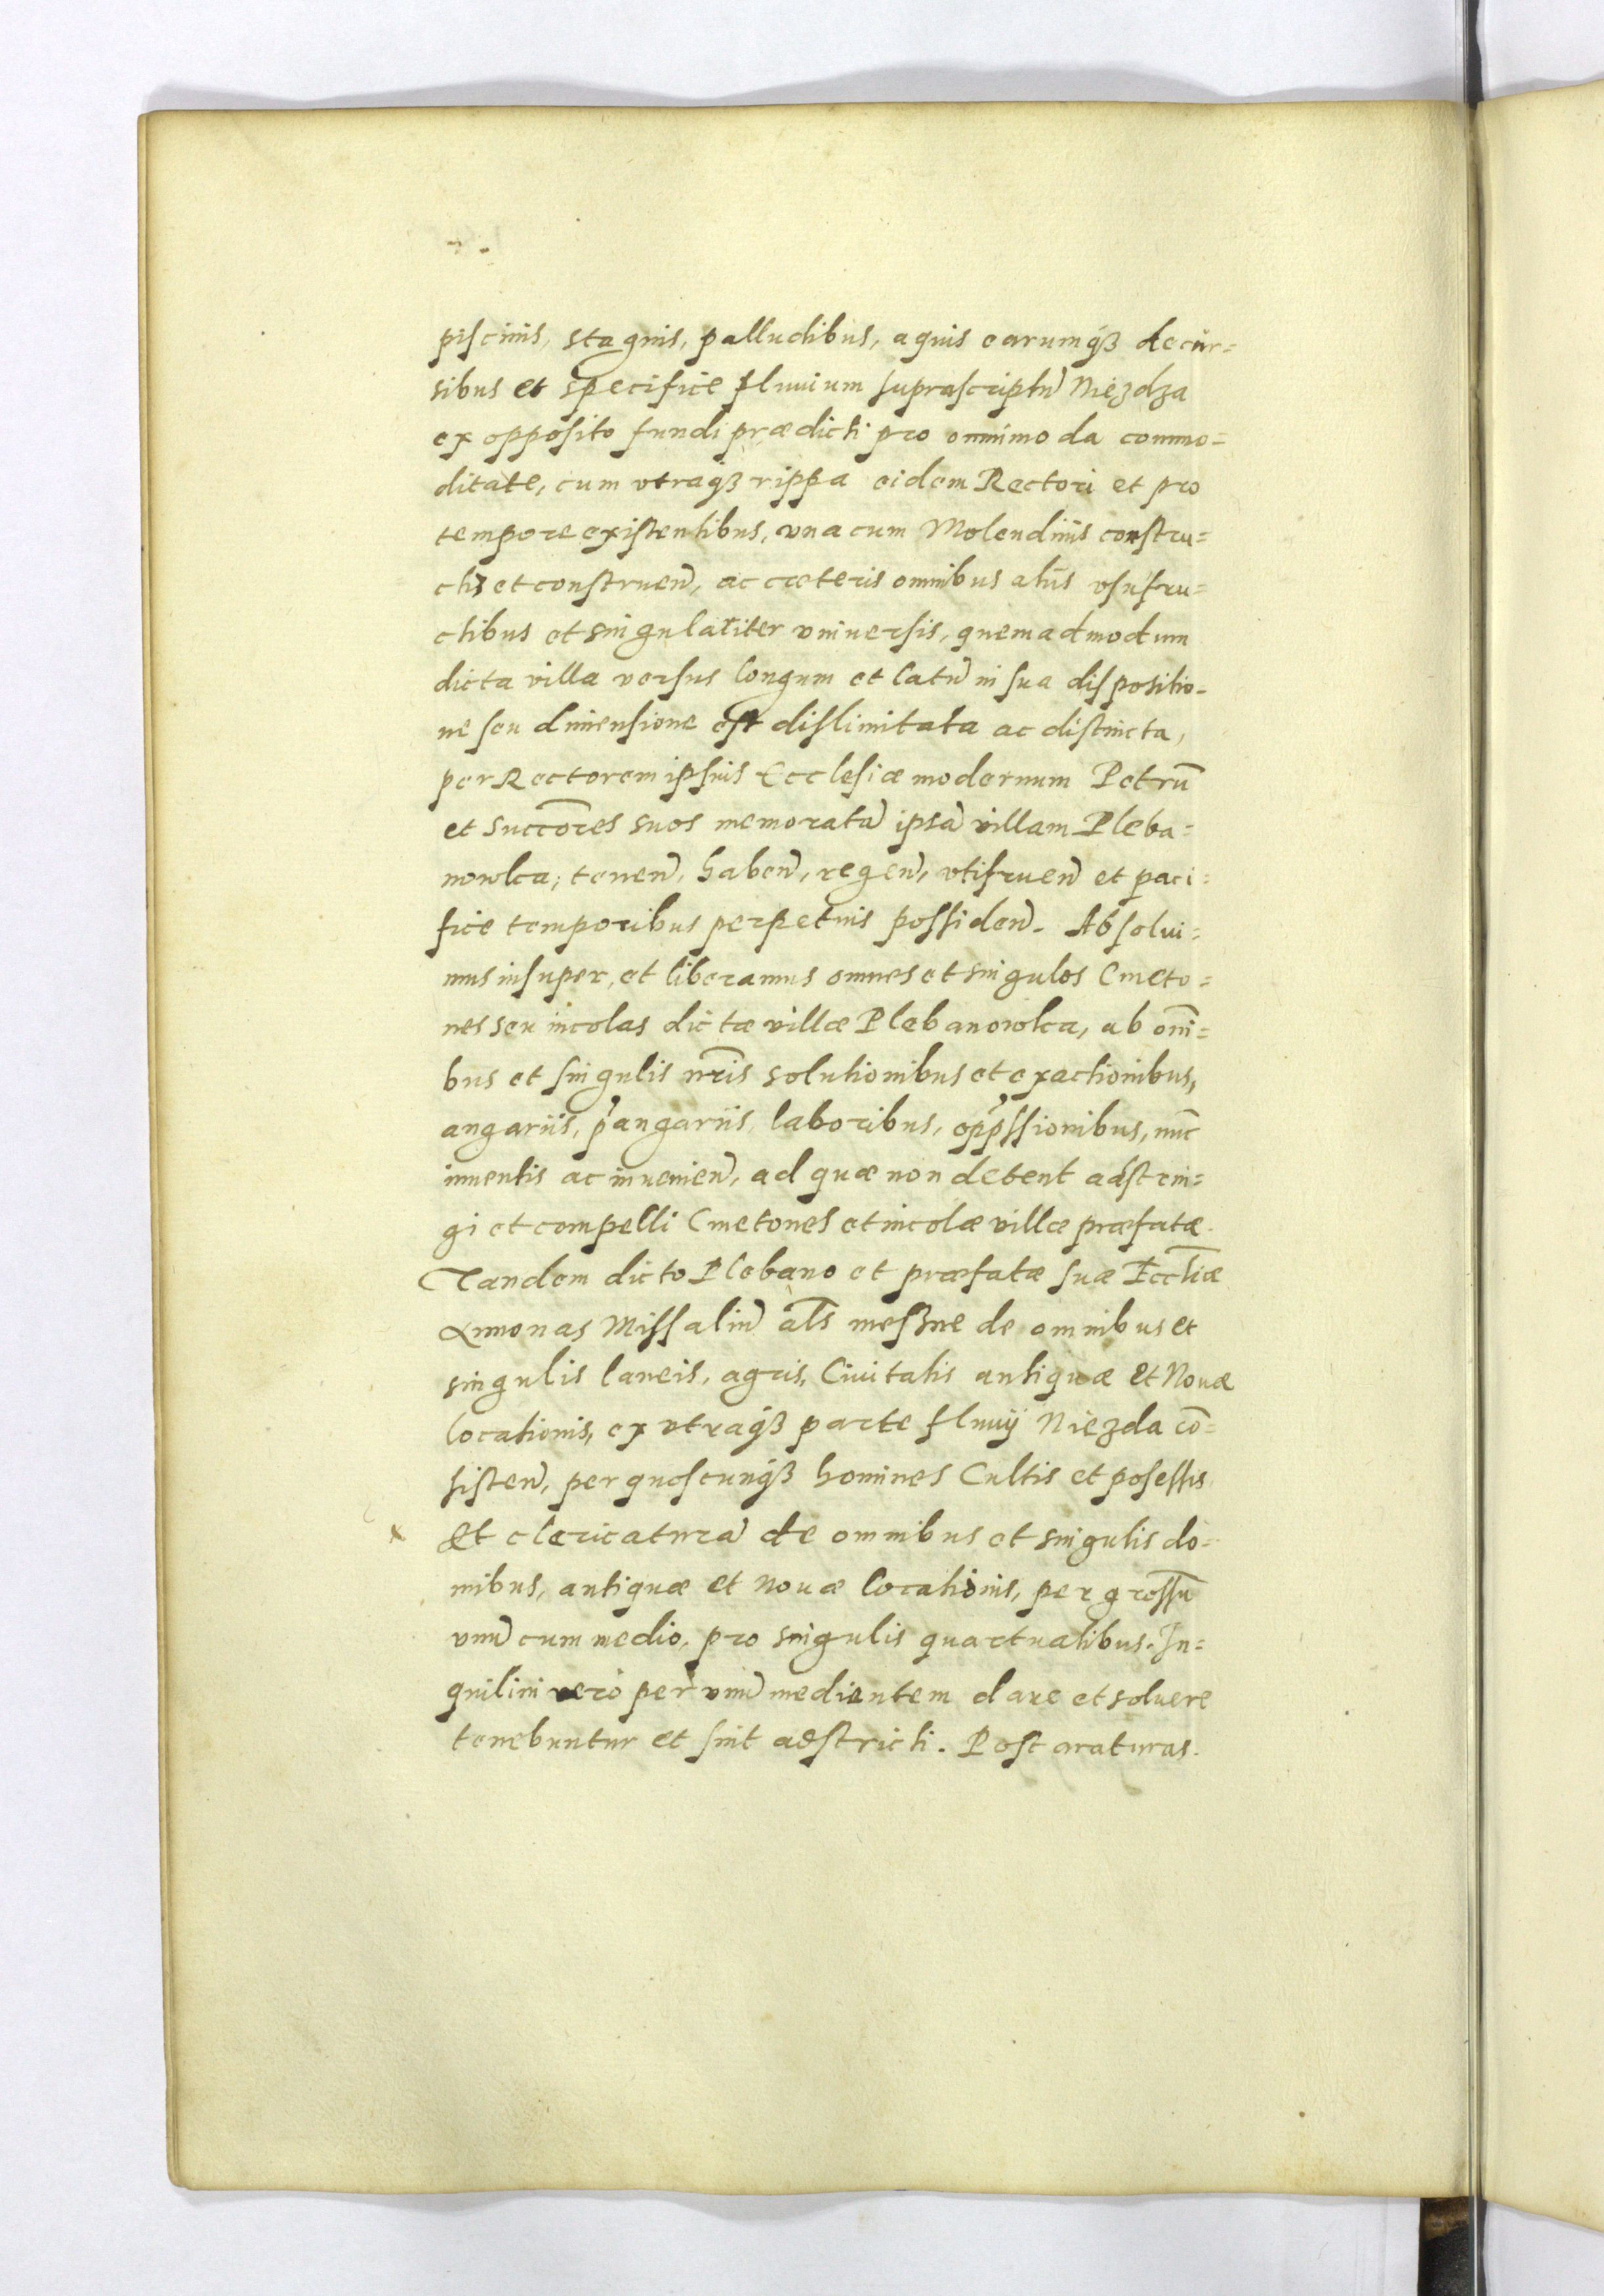 piscinis, stagnis, palludibus, aquis earumq́ꝫ decur=
sibus et specifice fluuium suprascriptũ Niezdza
ex opposito fundi prædicti pro omnimoda commo=
ditate, cum vtraq́ꝫ rippa eidem Rectori et pro
tempore existentibus, vna cum Molendinis constru=
ctis et construen̄, ac cæteris omnibus aliis vsufru=
ctibus et singulariter vniuersis, quemadmodum
dicta villa versus longum et latũ in sua dispositio-
ne seu dimensione est dislimitata ac distincta,
per Rectorem ipsius Ecclesiæ modernum Petrũ
et succores̄ suos memoratã ipsã villam Pleba=
nowlca, tenen̄, haben̄, regen̄, vtifruen̄ et paci=
fice temporibus perpetuis possiden̄. Absolui=
mus insuper, et liberamus omnes et singulos Cmeto=
nes seu incolas dictæ villæ Plebanowlca, ab om̄i=
bus et singulis nr̄is solutionibus et exactionibus,
angariis, p̓angariis, laboribus, opp̓ssionibus, nūc
inuentis ac inuenien̄, ad quæ non debent adstrin=
gi et compelli Cmetones et incolæ villæ præfatæ.
Tandem dicto Plebano et præfatæ suæ Eccl̄iæ
Annonas Missaliũ al̄s meszne de omnibus et
singulis laneis, agris, Ciuitatis antiquæ et Nouæ
locationis, ex vtraq́ꝫ parte fluuij Niezda cō=
sisten̄, per quoscunq́ꝫ homines Cultis et posessis
x Et clericaturã de omnibus et singulis do=
mibus, antiquæ et nouæ locationis, per grossũ
vnũ cum medio, pro singulis quartualibus. In=
quilini verò per vnũ medientem dare et soluere
tenebuntur et sint adstricti. Post araturas.